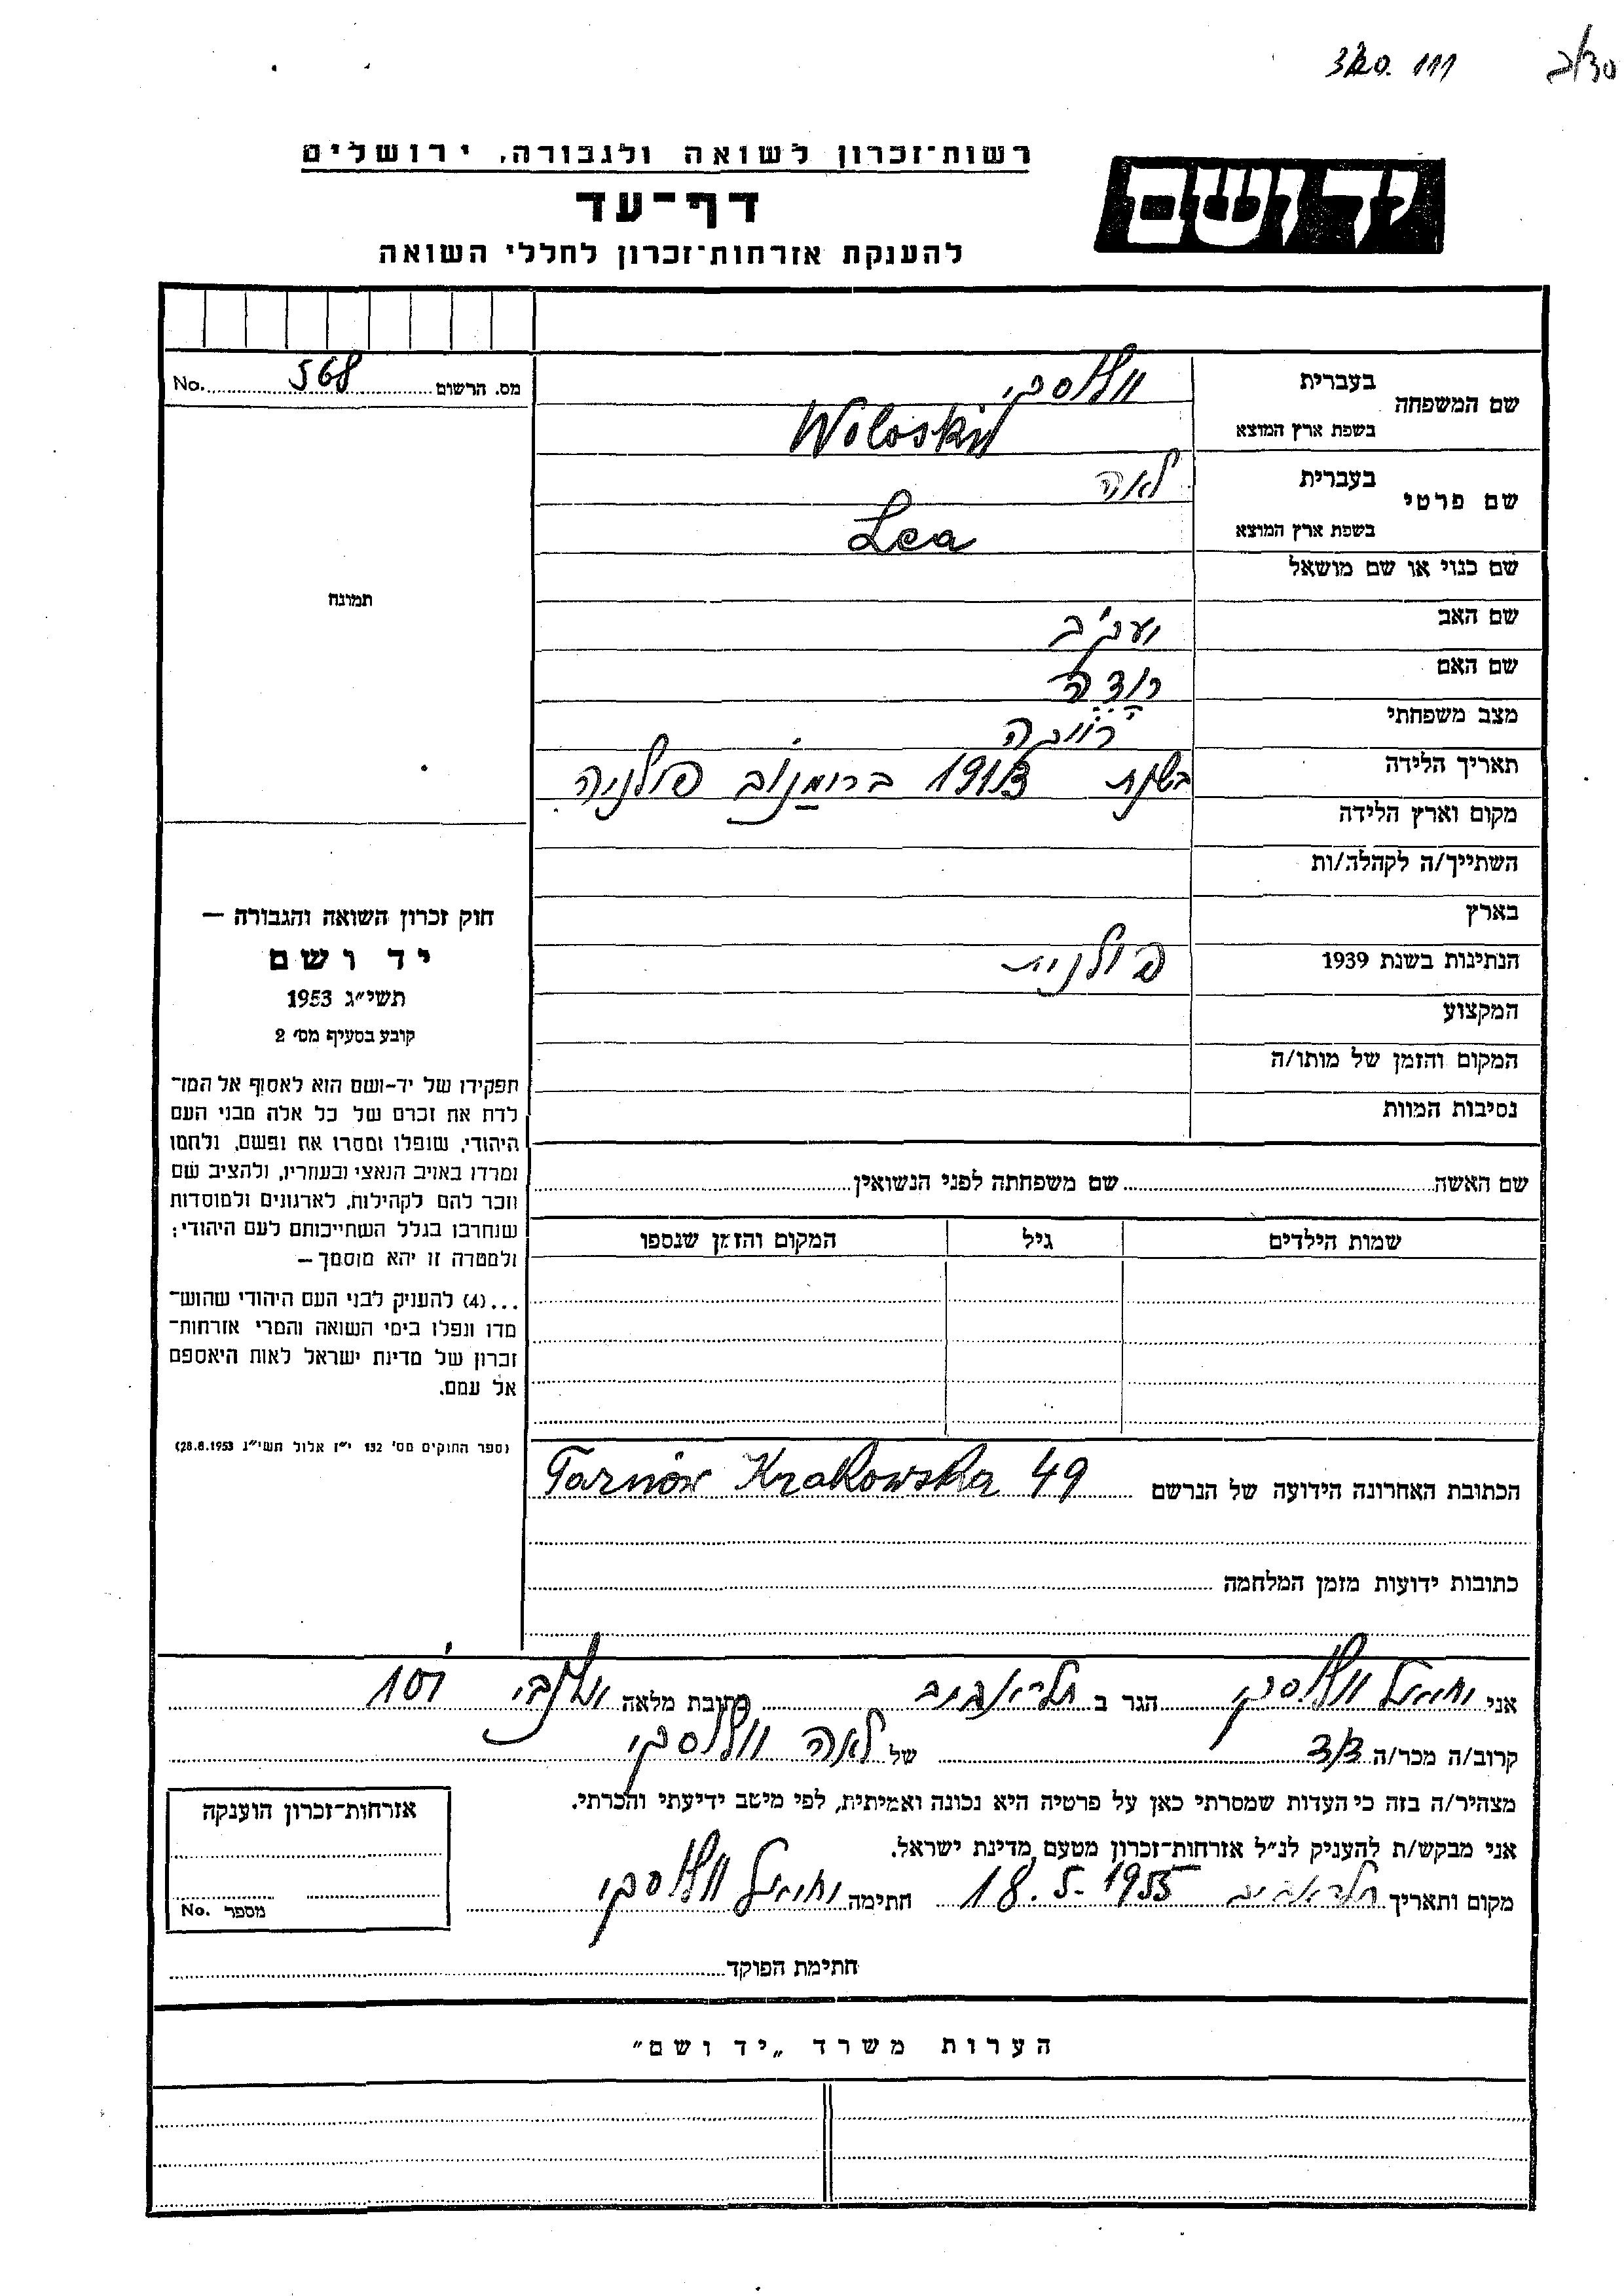 רשות־זכרון לשואה ולגבורה, ירושלים
יד ושם
דף־עד
להענקת אזרחות־זכרון לחללי השואה
מס. הרשום 568 No.
שם המשפחה
בעברית וולוסקי
בשפת ארץ המוצא Woloski
שם פרטי
בעברית לאה
בשפת ארץ המוצא Lea
שם כנוי או שם מושאל
שם האב יעקב
שם האם
מצב משפחתי רווקה
תאריך הלידה בשנת 1913 ברומנוב פולניה
מקום וארץ הלידה
השתייך/ה לקהלה/ות
בארץ
הנתינות בשנת 1939 פולנית
המקצוע
המקום והזמן של מותו/ה
נסיבות המוות
תמונה
חוק זכרון השואה והגבורה —
יד ושם
תשי״ג 1953
קובע בסעיף מס׳ 2
תפקידו של יד-ושם הוא לאסוף אל המו־
לדת את זכרם של כל אלה מבני העם
היהודי, שנפלו ומסרו את נפשם, נלחמו
ומרדו באויב הנאצי ובעוזריו, ולהציב שם
וזכר להם לקהילות, לארגונים ולמוסדות
שנחרבו בגלל השתייכותם לעם היהודי;
ולמטרה זו יהא מוסמך —
...(4) להעניק לבני העם היהודי שהוש־
מדו ונפלו בימי השואה והמרי אזרחות־
זכרון של מדינת ישראל לאות היאספם
אל עמם.
(ספר החוקים מס׳ 132 י״ז אלול תשי״ג 28.8.1953)
שם האשה שם משפחתה לפני הנשואין
שמות הילדים גיל המקום והזמן שנספו
הכתובת האחרונה הידועה של הנרשם Tarnów Krakowska 49
כתובות ידועות מזמן המלחמה
אני יחיאל וולוסקי הגר ב תל־אביב כתובת מלאה אלנבי 101
קרוב/ה מכר/ה של לאה וולוסקי
מצהיר/ה בזה כי העדות שמסרתי כאן על פרטיה היא נכונה ואמיתית, לפי מיטב ידיעתי והכרתי.
אני מבקש/ת להעניק לנ״ל אזרחות־זכרון מטעם מדינת ישראל.
מקום ותאריך תל־אביב 18.5.1955 חתימה יחיאל וולוסקי
אזרחות־זכרון הוענקה
מספר No.
חתימת הפוקד
הערות משרד „יד ושם״